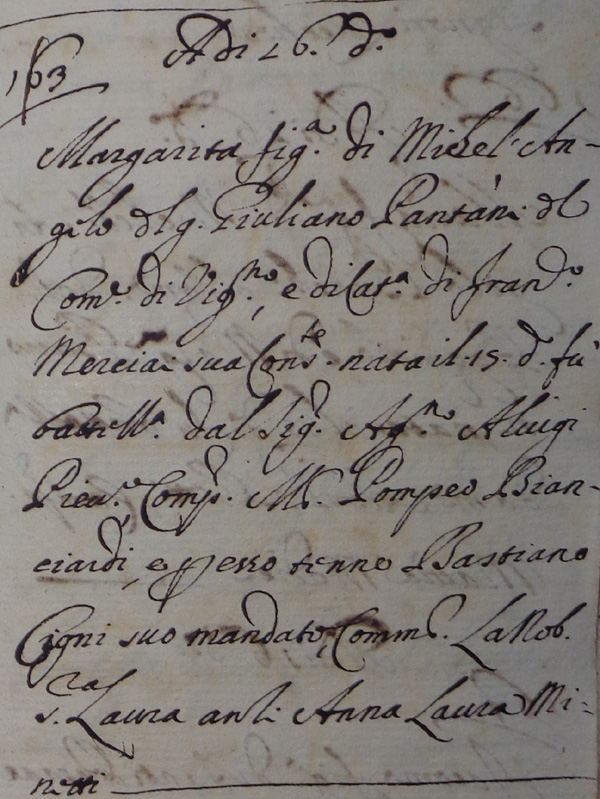 Adi 26. d.º
163
Margarita fig.ª di Michel An-
gelo dl g. Giuliano Pantani dl
Com.e di Vig.no, e di Cat.ª di Fran.co
Merciai sua Cons.te nata il 15. d.º fù
batte.ª dal Sig.r Ag.no Aluigi
Piev.º, Comp. M. Pompeo Bian-
ciardi, e p esso tenne Bastiano
Cigni suo mandato, Comm. La Nob.
S.ra Laura anzi Anna Laura Mi-
netti